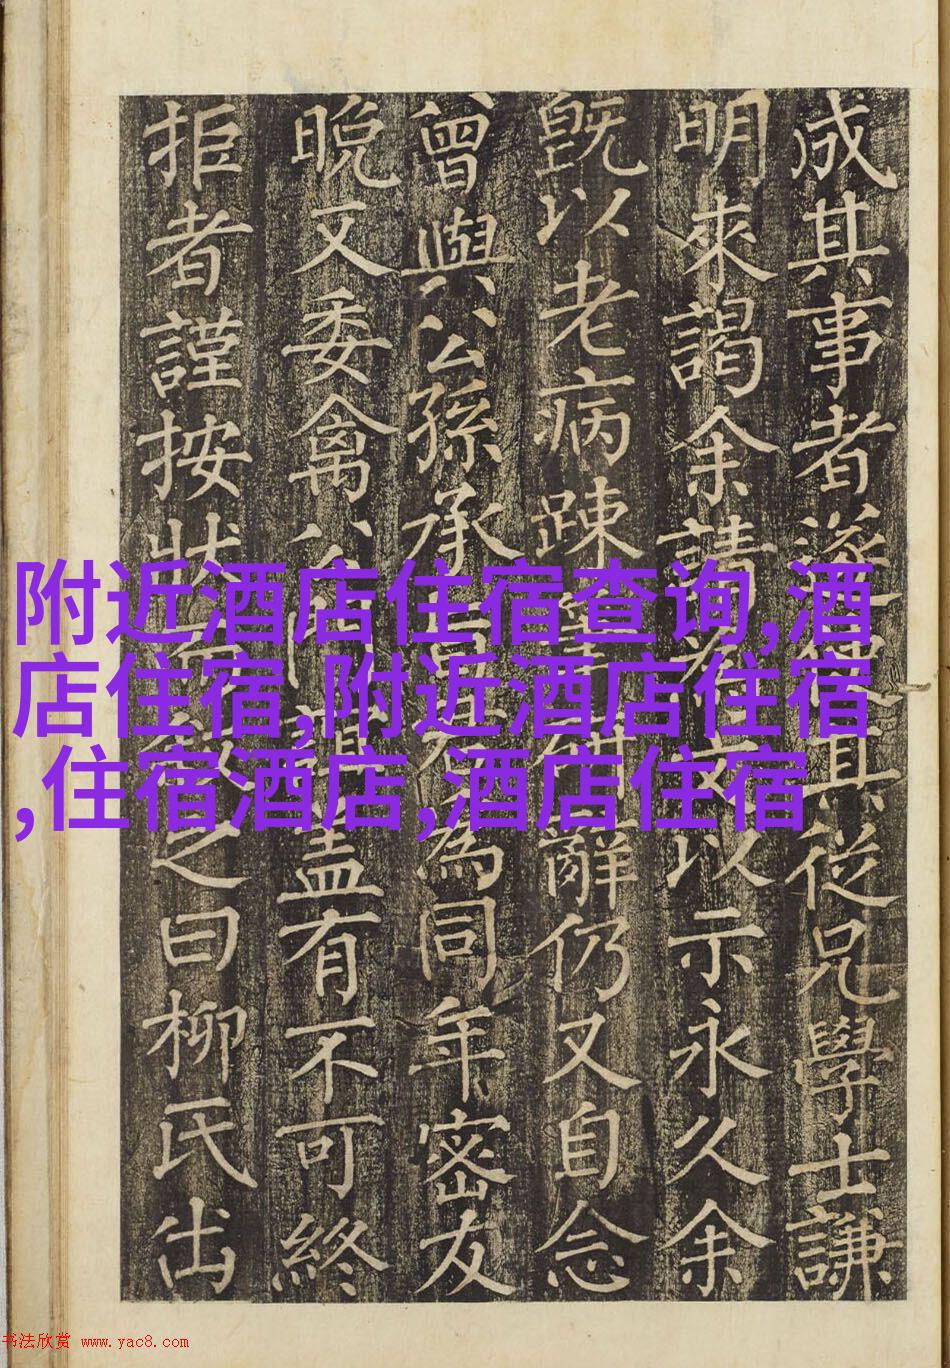 成其事者遂使其從兄學士謙
明來謁余請以示永久余
既以老病踈辭仍又自念
曾與公孫承為同年密友
晚又委禽公盖有不可終
拒者謹按狀之曰柳氏出
附近酒店住宿查询,酒
店住宿,附近酒店住宿
,住宿酒店,酒店住宿
书法欣赏 www.yac8.com